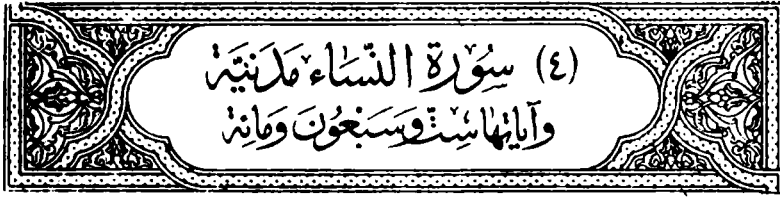 (٤) سُورَة النِّسَاء مَدَنيَّة
وَآيَاتِهَا سِتٌّ وَسَبْعُونَ وَمائة